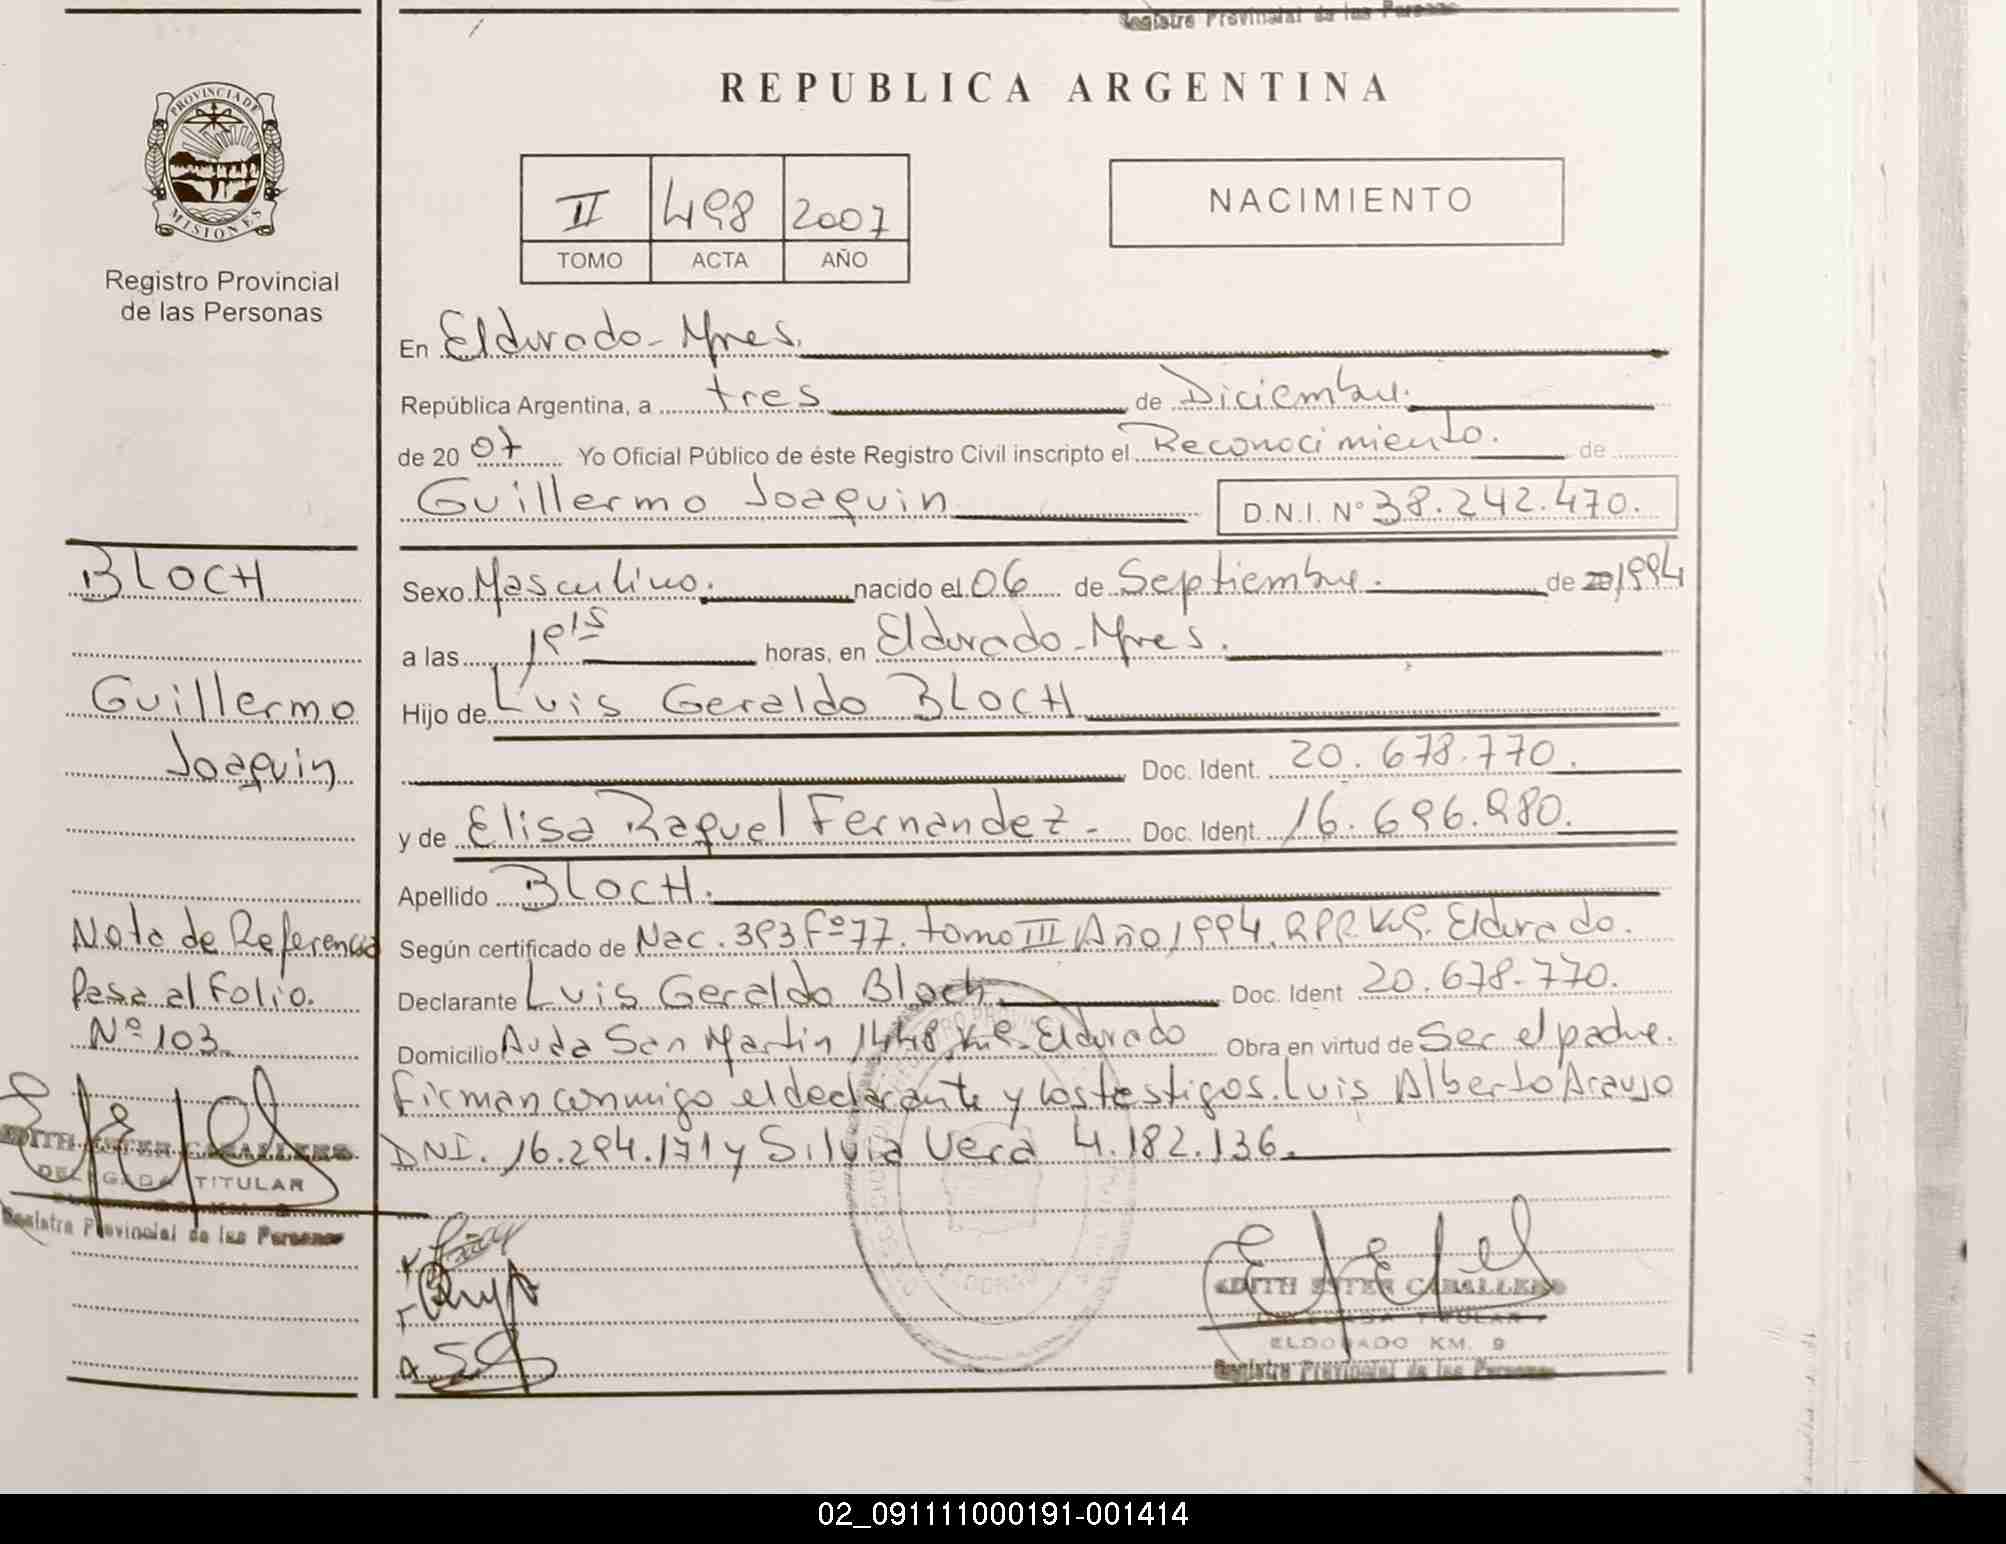 Registro Provincial de las Personas
REPUBLICA ARGENTINA
PROVINCIA DE
MISIONES
Registro Provincial
de las Personas
II 498 2007
TOMO ACTA AÑO
NACIMIENTO
En Eldorado - Mnes.
República Argentina, a tres de Diciembre.
de 20 07 Yo Oficial Público de éste Registro Civil inscripto el Reconocimiento. de
Guillermo Joaquin D.N.I. Nº 38.242.470.
BLOCH
Sexo Masculino. nacido el 06 de Septiembre. de 1994
a las horas, en Eldorado - Mnes.
Guillermo
Hijo de Luis Geraldo BLOCH
Joaquin
Doc. Ident. 20.678.770.
y de Elisa Raquel Fernandez - Doc. Ident. 16.696.980.
Apellido BLOCH.
Nota de Referencia
Según certificado de Nac. 393 Fº 77. tomo III Año 1994. RPP. K.9. Eldorado.
Pasa al Folio.
Declarante Luis Geraldo Bloch Doc. Ident 20.678.770.
Nº 103.
Domicilio Avda San Martin 1448. K.9. Eldorado Obra en virtud de Ser el padre.
Firman conmigo el declarante y los testigos. Luis Alberto Araujo
DNI. 16.294.171 y Silvia Vera 4.182.136.
EDITH ESTER CABALLERO
DELEGADA TITULAR
Registro Provincial de las Personas
EDITH ESTER CABALLERO
DELEGADA TITULAR
ELDORADO KM. 9
Registro Provincial de las Personas
02_091111000191-001414